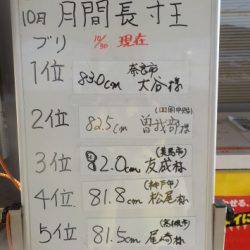 10月 月間長寸王
ブリ 10/30 現在
1位 83.0cm 奈良市 大谷様
2位 82.5cm 曽我部様
3位 82.0cm 友成様
4位 81.8cm (神戸市) 松尾様
5位 81.5cm 尾崎様